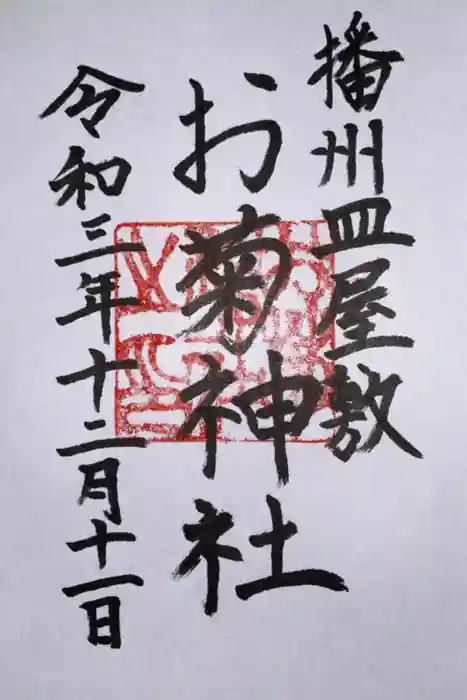 播州皿屋敷
お菊神社
令和三年十二月十一日